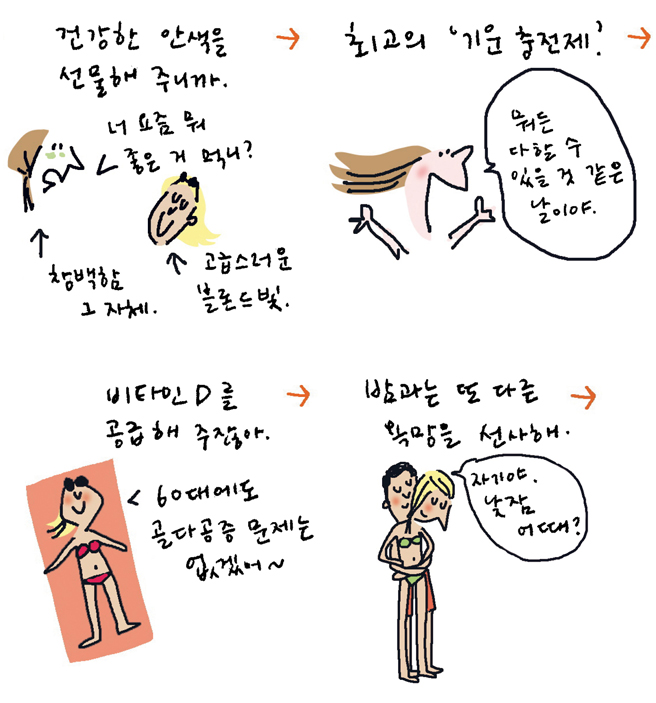 건강한 안색을
선물해 주니까.
너 요즘 뭐
좋은 거 먹니?
창백함
그 자체.
고급스러운
'블론드빛'.
최고의 '기운 충전제'.
뭐든
다할 수
있을 것 같은
날이야.
비타민 D를
공급해 주잖아.
60대에도
골다공증 문제는
없겠어~
밤과는 또 다른
욕망을 선사해.
자기야.
낮잠
어때?